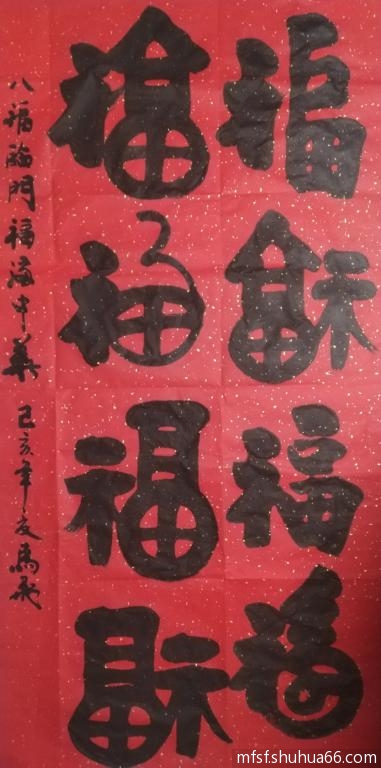 福福福福
福福福福
八福臨門福滿中華 己亥年夏馬飛
mfsfshuhua66.com